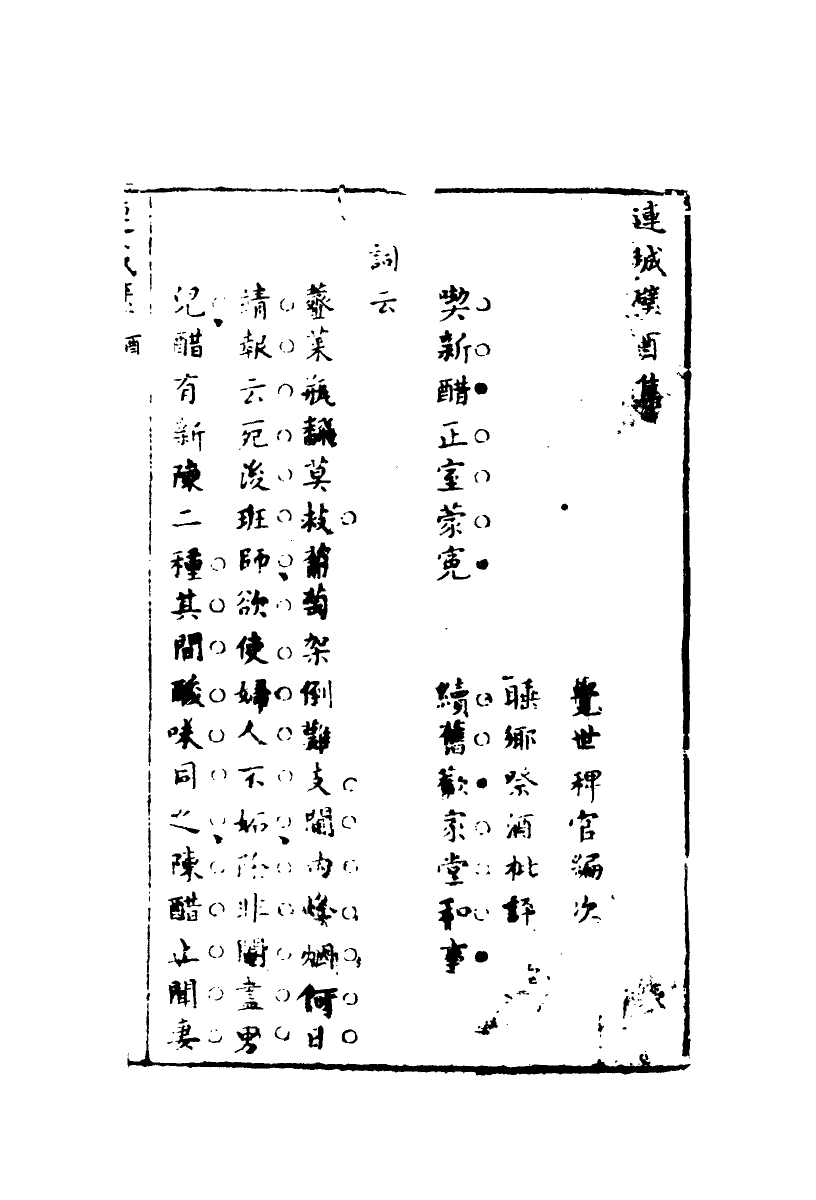 連城璧酉集
覺世稗官編次
睡鄉祭酒批評
喫新醋正室蒙冤　續舊歡家堂和事
詞云
虀菜瓶翻莫救葡萄架倒難支閫内烽烟何日
靖報云死後班師欲使婦人不妬除非閹盡男
兒醋有新陳二種其間酸味同之陳醋止聞妻
酉